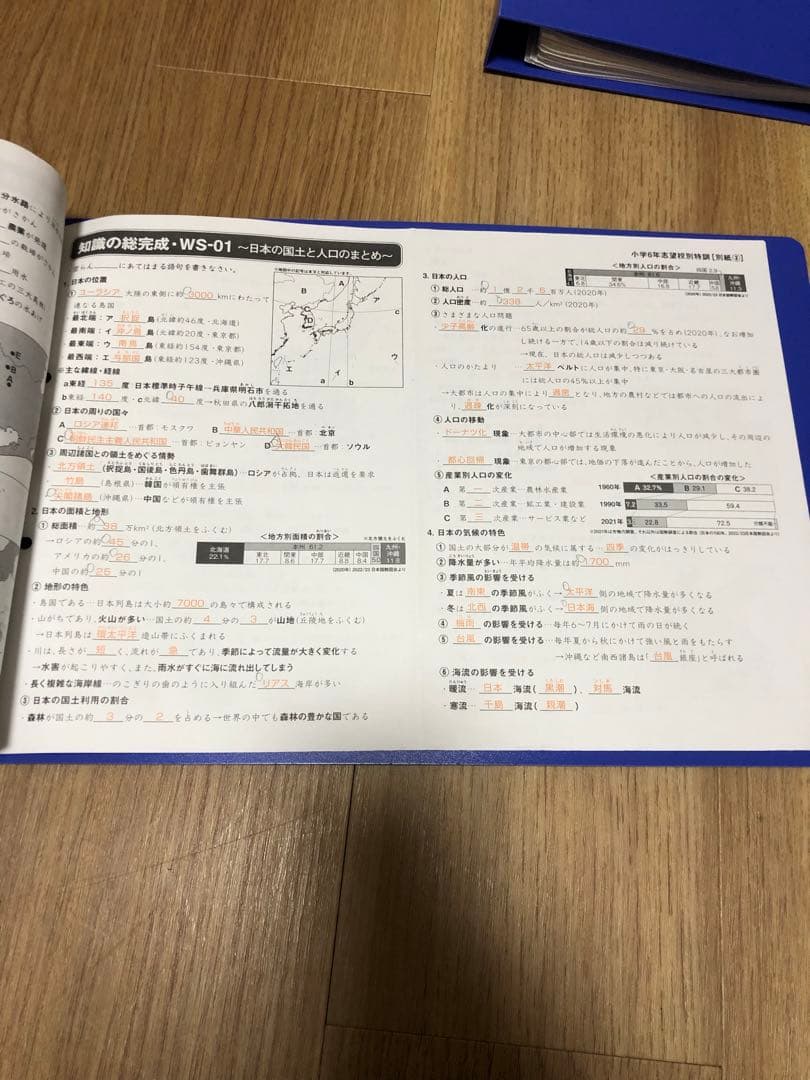 分水路により
がさかん
農業が発達
の栽培がさかん
雨水
この三大
E
B
A
知識の総完成・WS-01 ～日本の国土と人口のまとめ～
にあてはまる語句を書きなさい。
日本の位置
① ユーラシア 大陸の東側に約 3000 kmにわたって
連なる島国
・最北端：ア 択捉 島（北緯約46度・北海道）
・最南端：イ 沖ノ鳥 島（北緯約20度・東京都）
・最東端：ウ 南鳥 島（東経約154度・東京都）
・最西端：エ 与那国 島（東経約123度・沖縄県）
※主な緯線・経線
a東経 135 度 日本標準時子午線→兵庫県明石市を通る
b東経 140 度・c北緯 40 度→秋田県の八郎潟干拓地を通る
② 日本の周りの国々
A ロシア連邦 …首都：モスクワ B 中華人民共和国 …首都 北京
C 朝鮮民主主義人民共和国 …首都：ピョンヤン D 大韓民国 …首都・ソウル
③ 周辺諸国との領土をめぐる情勢
・北方領土（択捉島・国後島・色丹島・歯舞群島）…ロシアが占拠、日本は返還を要求
・竹島（島根県）…韓国が領有権を主張
・尖閣諸島（沖縄県）…中国などが領有権を主張
2. 日本の面積と地形
① 総面積…約 38 万km²（北方領土をふくむ）
→ロシアの約 45 分の1、
アメリカの約 26 分の1、
中国の約 25 分の1
＜地方別面積の割合＞
※北方領土をふくむ
北海道 22.1%
本州 61.2
東北 17.7
関東 8.6
中部 17.7
近畿 8.8
中国 8.4
四国 5.0
九州・沖縄 11.8
（2020年）2022/23 日本国勢図会より
② 地形の特色
・島国である…日本列島は大小約 7000 の島々で構成される
・山がちであり、火山が多い…国土の約 4 分の 3 が山地（丘陵地をふくむ）
→日本列島は 環太平洋 造山帯にふくまれる
・川は、長さが 短 く、流れが 急 であり、季節によって流量が大きく変化する
→水害が起こりやすく、また、雨水がすぐに海に流れ出してしまう
・長く複雑な海岸線…のこぎりの歯のように入り組んだ リアス 海岸が多い
③ 日本の国土利用の割合
・森林が国土の約 3 分の 2 を占める→世界の中でも森林の豊かな国である
小学6年志望校別特訓［別紙②］
3. 日本の人口
＜地方別人口の割合＞
本州 81.6
四国 2.9
東北 6.8
関東 34.6%
中部 16.8
近畿 17.7
中国 5.8
九州・沖縄 11.3
① 総人口 …約 1 億 2 千 6 百万人（2020年）
② 人口密度…約 338 人／km²（2020年）
③ さまざまな人口問題
・少子高齢 化の進行…65歳以上の割合が総人口の約 29 %を占め（2020年）、なお増加
し続ける一方で、14歳以下の割合は減り続けている
→現在、日本の総人口は減少しつつある
・人口のかたより … 太平洋 ベルトに人口が集中、特に東京・大阪・名古屋の三大都市圏
には総人口の45%以上が集中
→大都市は人口の集中により 過密 となり、地方の農村などでは都市への人口の流出によ
り、過疎 化が深刻になっている
④ 人口の移動
・ドーナツ化 現象…大都市の中心部では生活環境の悪化により人口が減少し、その周辺の
地域で人口が増加する現象
・都心回帰 現象…東京の都心部では、地価の下落が進んだことから、人口が増加した
⑤ 産業別人口の変化
A 第 一 次産業…農林水産業
B 第 二 次産業…鉱工業・建設業
C 第 三 次産業…サービス業など
＜産業別人口の割合の変化＞
1960年 A 32.7% B 29.1 C 38.2
1990年 7.2 33.5 59.4
2021年 22.8 72.5 分類不能
4. 日本の気候の特色
① 国土の大部分が 温帯 の気候に属する…四季 の変化がはっきりしている
② 降水量が多い…年平均降水量は約 1700 mm
③ 季節風の影響を受ける
・夏は 南東 の季節風がふく→ 太平洋 側の地域で降水量が多くなる
・冬は 北西 の季節風がふく→ 日本海 側の地域で降水量が多くなる
④ 梅雨 の影響を受ける…毎年6～7月にかけて雨の日が続く
⑤ 台風 の影響を受ける…毎年夏から秋にかけて強い風と雨をもたらす
→沖縄など南西諸島は「台風 銀座」と呼ばれる
⑥ 海流の影響を受ける
・暖流… 日本 海流（ 黒潮 ）、 対馬 海流
・寒流… 千島 海流（ 親潮 ）